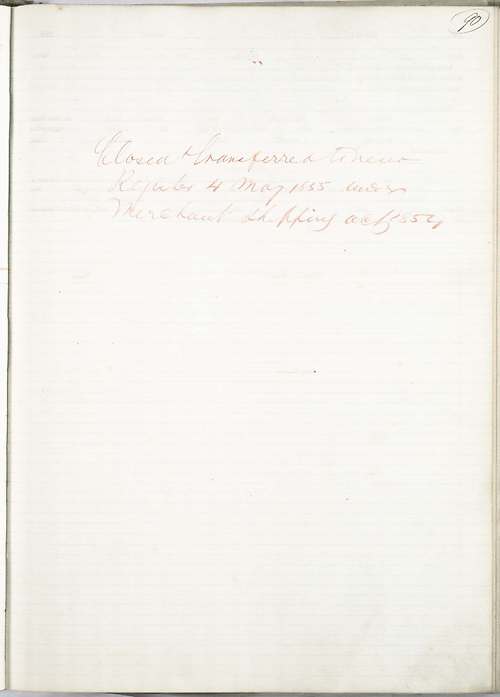 90
Closed & transferred to new
Register 4 May 1855 under
Merchant Shipping act 1854